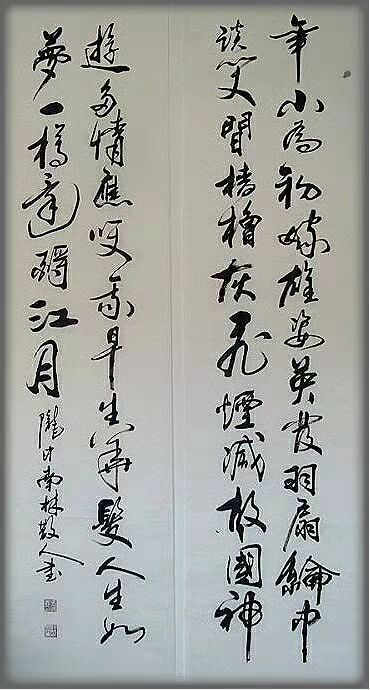 年小喬初嫁雄姿英發羽扇綸巾
談笑間檣櫓灰飛煙滅故國神
遊多情應笑我早生華髮人生如
夢一樽還酹江月 隴中南林散人書